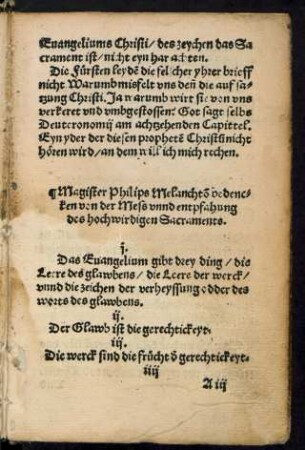 Euangeliums Christi / des zeychen das Sa
crament ist / nicht eyn har achten.
Die Fürsten leydē die selcher yhrer brieff
nicht Warumb misfelt vns deñ die auf satzung
Christi. Ja warumb wirt sie von vns
verkeret vnd vmbgestossen: Got sagt selbs
Deuteronomij am achtzehenden Capittel.
Eyn yder der diesen prophetē Christū nicht
hören wird / an dem will ich mich rechen.
¶Magister Philips Melanchtō bedenc-
ken von der Meß vnnd entpfahung
des hochwirdigen Sacraments.
j.
Das Euangelium gibt drey ding / die
Leere des glawbens / die Leere der werck /
vnnd die zeichen der verheyssung odder des
worts des glawbens.
ij.
Der Glawb ist die gerechtickeyt.
iij.
Die werck sind die frücht ð gerechtickeyt.
iiij
A iij